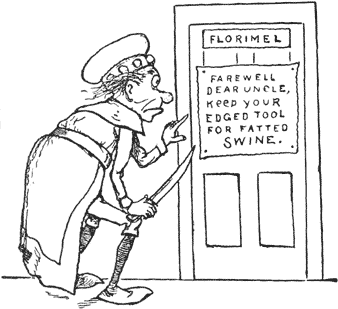 FLORIMEL
FAREWELL
DEAR UNCLE,
KEEP YOUR
EDGED TOOL
FOR FATTED
SWINE.